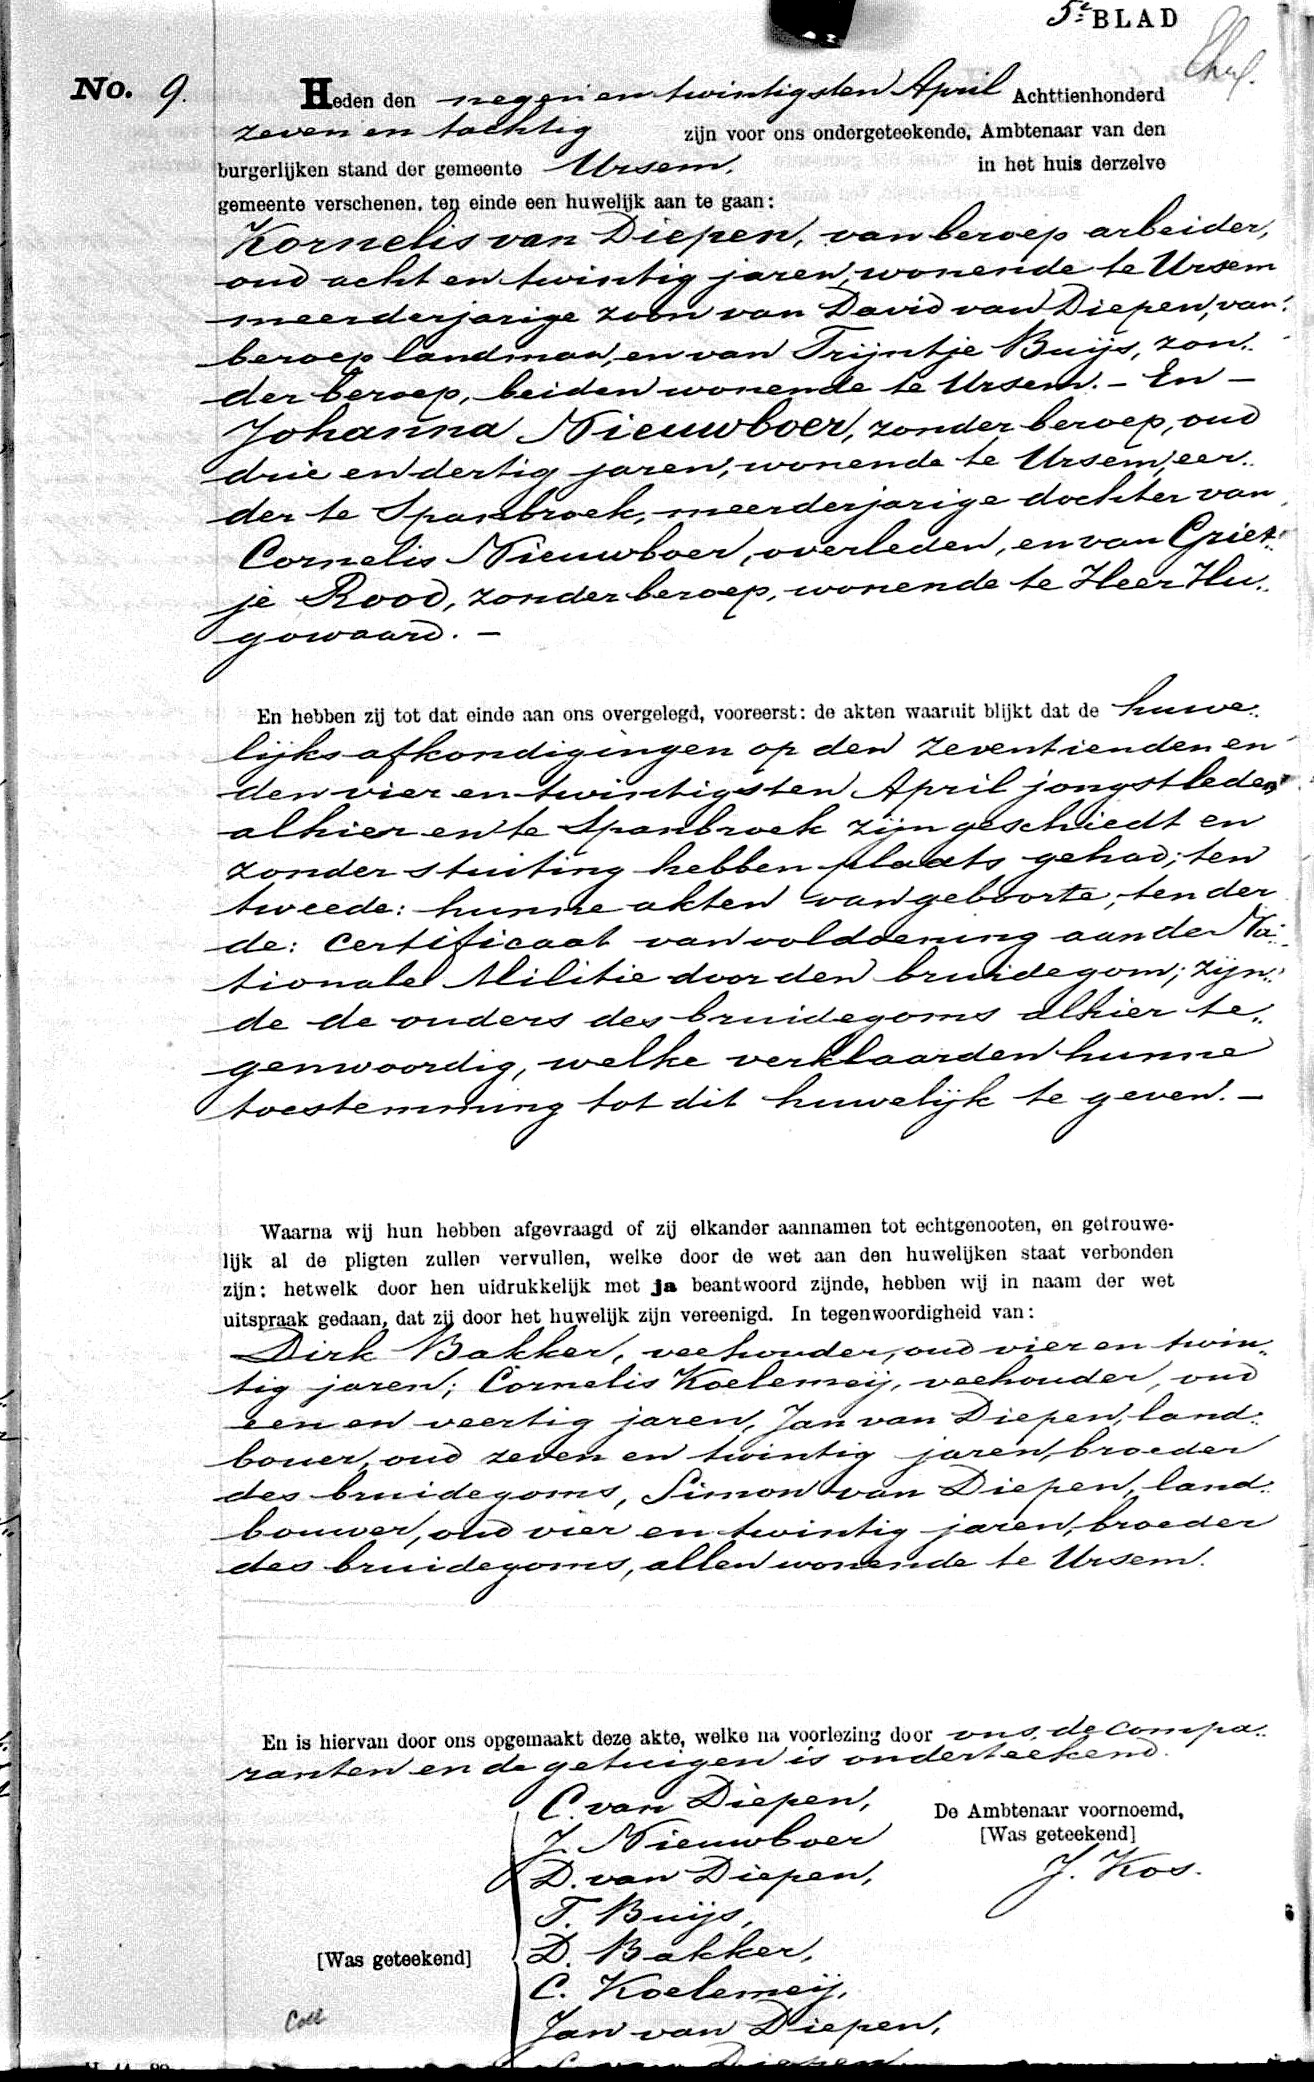 5e BLAD
No. 9.
Heden den negen en twintigsten April Achttienhonderd
zeven en tachtig zijn voor ons ondergeteekende, Ambtenaar van den
burgerlijken stand der gemeente Ursem, in het huis derzelve
gemeente verschenen, ten einde een huwelijk aan te gaan:
Kornelis van Diepen, van beroep arbeider,
oud acht en twintig jaren, wonende te Ursem
meerderjarige zoon van David van Diepen, van
beroep landman, en van Trijntje Buijs, zon„
der beroep, beiden wonende te Ursem. – En –
Johanna Nieuwboer, zonder beroep, oud
drie en dertig jaren, wonende te Ursem, eer„
der te Spanbroek, meerderjarige dochter van
Cornelis Nieuwboer, overleden, en van Griet„
je Rood, zonder beroep, wonende te Heer Hu„
gowaard. –
En hebben zij tot dat einde aan ons overgelegd, vooreerst: de akten waaruit blijkt dat de huwe„
lijks afkondigingen op den zeventienden en
den vier en twintigsten April jongstleden
alhier en te Spanbroek zijn geschiedt en
zonder stuiting hebben plaats gehad; ten
tweede: hunne akten van geboorte; ten der
de: certificaat van voldoening aan de Na„
tionale Militie door den bruidegom; zijn„
de de ouders des bruidegoms alhier te„
genwoordig, welke verklaarden hunne
toestemming tot dit huwelijk te geven. –
Waarna wij hun hebben afgevraagd of zij elkander aannamen tot echtgenooten, en getrouwe-
lijk al de pligten zullen vervullen, welke door de wet aan den huwelijken staat verbonden
zijn: hetwelk door hen uidrukkelijk met ja beantwoord zijnde, hebben wij in naam der wet
uitspraak gedaan, dat zij door het huwelijk zijn vereenigd. In tegenwoordigheid van:
Dirk Bakker, veehouder, oud vier en twin„
tig jaren; Cornelis Koelemeij, veehouder, oud
een en veertig jaren, Jan van Diepen, land„
bouer, oud zeven en twintig jaren, broeder
des bruidegoms, Simon van Diepen, land„
bouwer, oud vier en twintig jaren, broeder
des bruidegoms, allen wonende te Ursem.
En is hiervan door ons opgemaakt deze akte, welke na voorlezing door ons, de compa„
ranten en de getuigen is onderteekend.
C. van Diepen,
De Ambtenaar voornoemd,
J. Nieuwboer
[Was geteekend]
D. van Diepen,
J. Kos.
T. Buijs,
[Was geteekend]
D. Bakker,
C. Koelemeij,
Jan van Diepen,
van Diepen